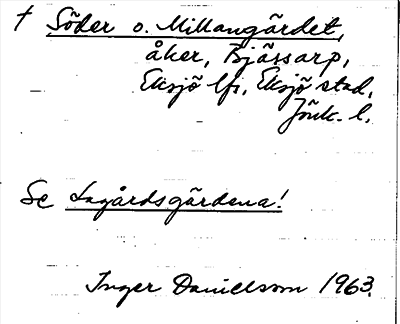 † Söder o. Mellangärdet,
åker, Bjässarp,
Eksjö lfs, Eksjö stad,
Jönk. l.
Se Lagårdsgärdena!
Inger Danielsson 1963.